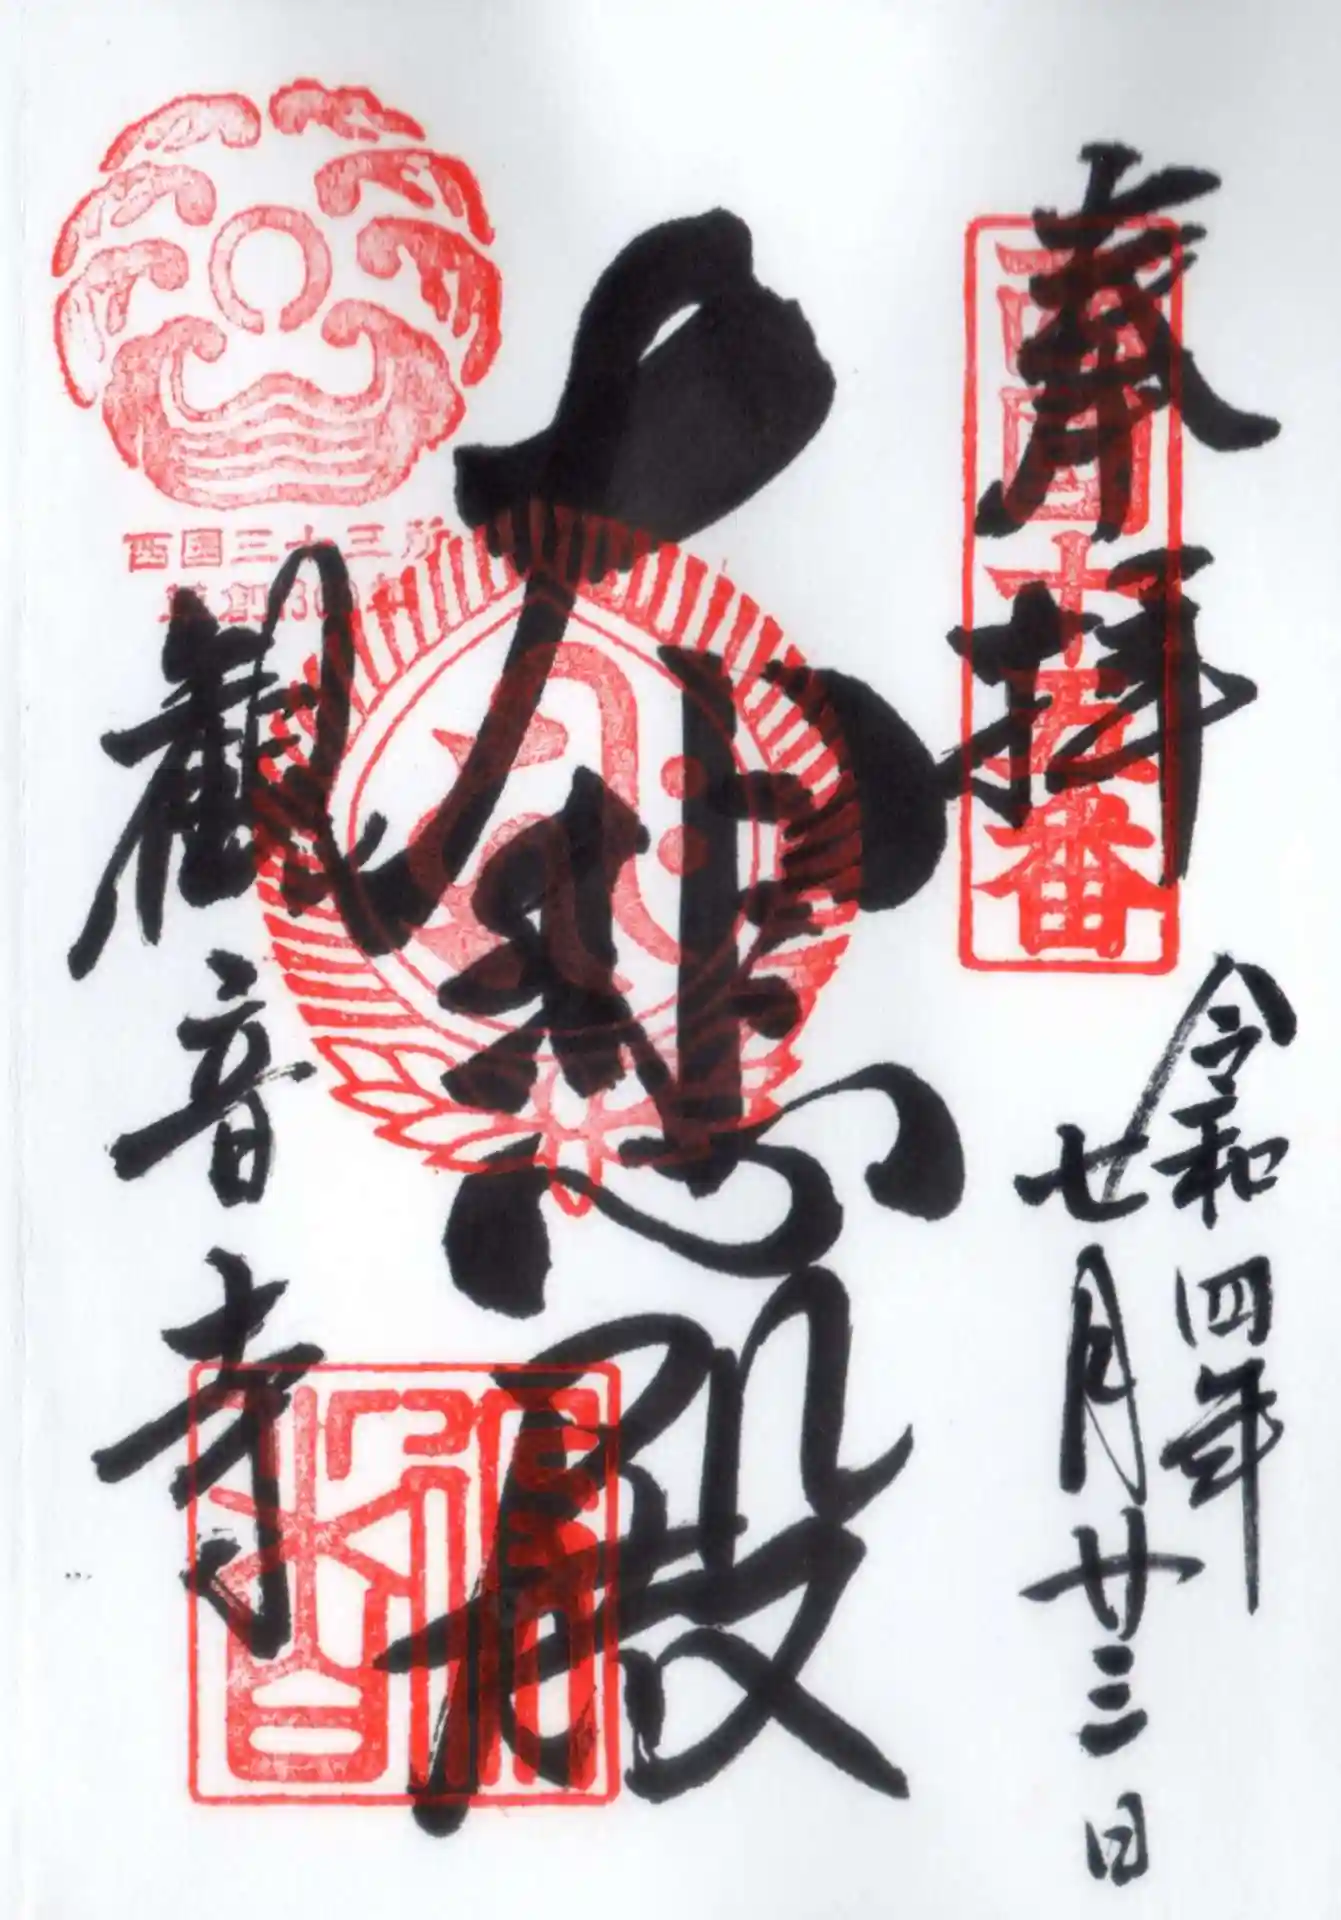 奉拝
西国十五番
令和四年
七月廿三日
大悲殿
西国三十三所
草創1300年
観音寺